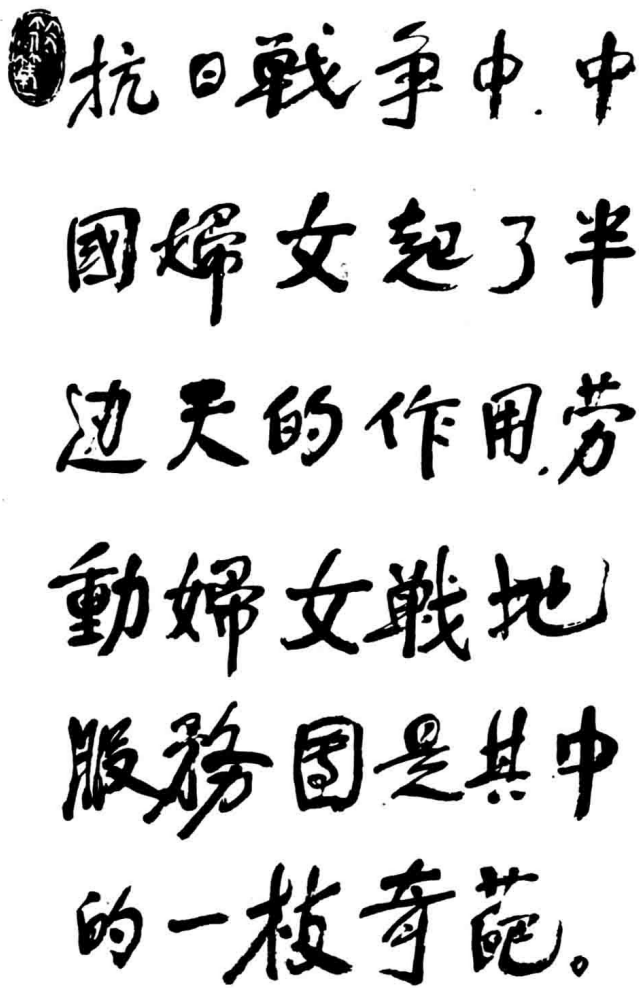 抗日戦争中.中
國婦女起了半
边天的作用.劳
動婦女戦地
服務團是其中
的一枝奇葩。